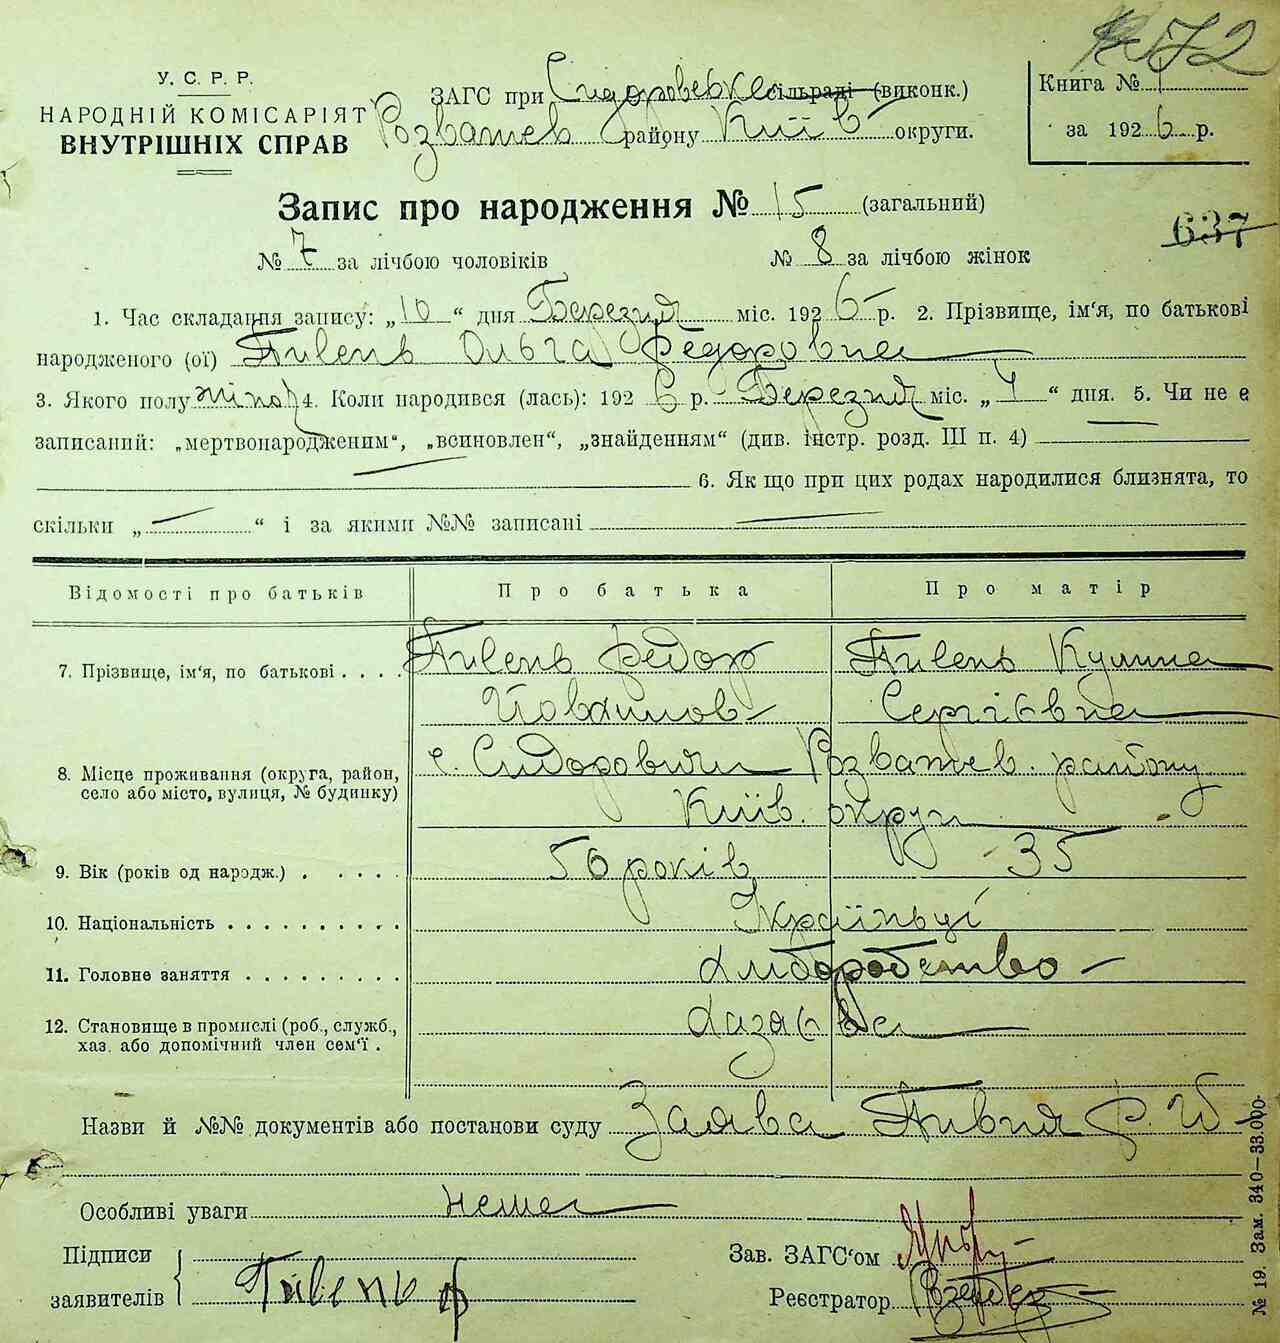 72
У. С. Р. Р.
НАРОДНІЙ КОМІСАРІЯТ
ВНУТРІШНІХ СПРАВ
ЗАГС при Сидоровській сільраді (виконк.)
Розважев району Київ округи.
Книга №
за 1926 р.
Запис про народження № 15 (загальний)
637
№ 7 за лічбою чоловіків № 8 за лічбою жінок
1. Час складання запису: „10“ дня Березня міс. 1926 р. 2. Прізвище, ім'я, по батькові
народженого (ої) Пивень Ольга Федоровна
3. Якого полу жіноч 4. Коли народився (лась): 1926 р. Березня міс. „4“ дня. 5. Чи не є
записаний: „мертвонародженим“, „всиновлен“, „знайденням“ (див. інстр. розд. III п. 4)
6. Як що при цих родах народилися близнята, то
скільки „ “ і за якими №№ записані
Відомості про батьків Про батька Про матір
7. Прізвище, ім'я, по батькові . . . . Пивень Федор Пивень Кулина
Йовхимов Сергієвна
8. Місце проживання (округа, район, с. Сидоровичи Розважев. району
село або місто, вулиця, № будинку) Київ. округи
9. Вік (років од народж.) . . . . . 50 років 35
10. Національність . . . . . . . . . . Українці
11. Головне заняття . . . . . . . . . Хліборобство
12. Становище в промислі (роб., служб., Хазяєва
хаз. або допомічний член сем'ї .
Назви й №№ документів або постанови суду Заява Пивня Ф. Й
Особливі уваги нема
Підписи Зав. ЗАГС'ом
заявителів Пивень ф Реєстратор
№ 19. Зам. 340—33.000.